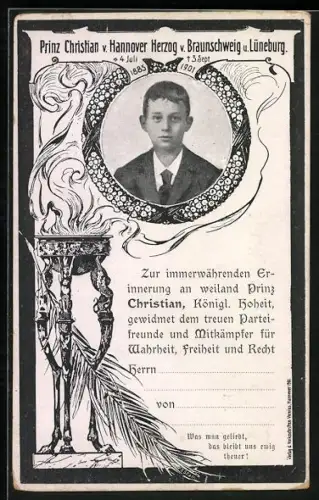 Prinz Christian v. Hannover Herzog v. Braunschweig u. Lüneburg.
* 4 Juli † 3. Sept
1885 1901
Zur immerwährenden Er-
innerung an weiland Prinz
Christian, Königl. Hoheit,
gewidmet dem treuen Partei-
freunde und Mitkämpfer für
Wahrheit, Freiheit und Recht
Herrn
von
Was man geliebt,
das bleibt uns ewig
theuer!